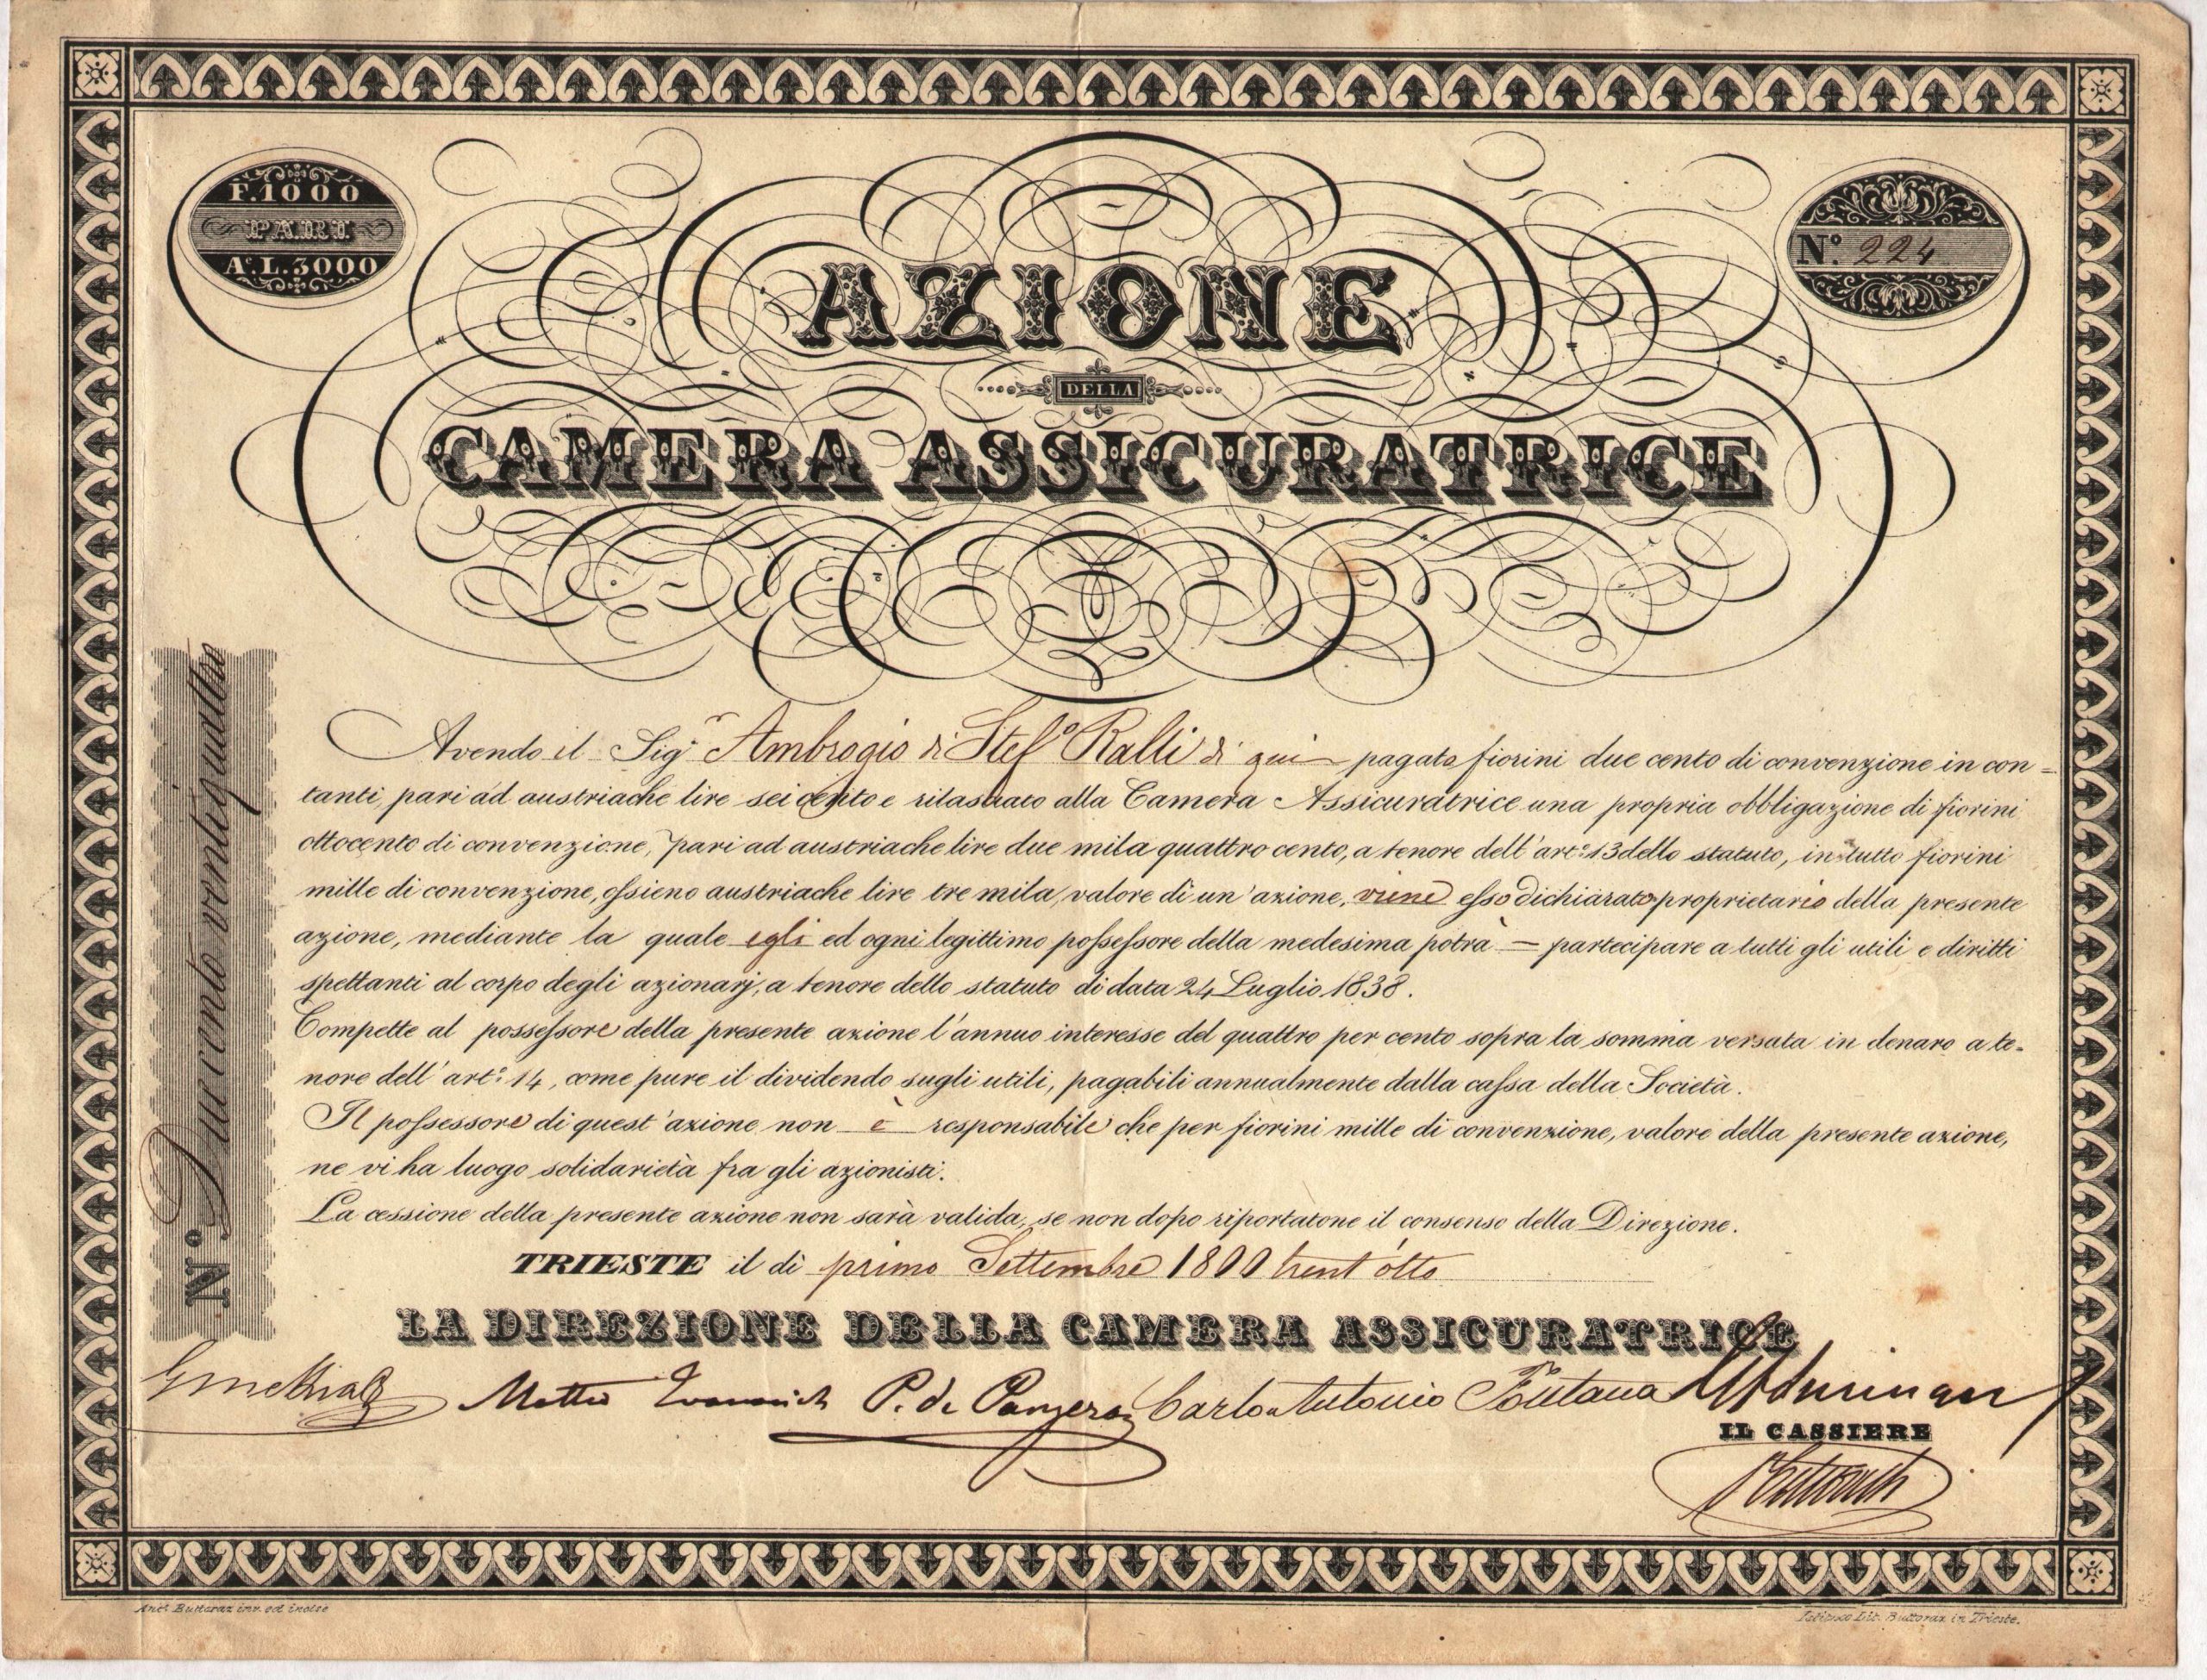 F. 1000
PARI
Ae. L. 3000
No. 224
AZIONE
DELLA
CAMERA ASSICURATRICE
No. Duecento ventiquattro
Avendo il Sigr. Ambrogio di Stefo Ralli di qui pagato fiorini due cento di convenzione in con=
tanti, pari ad austriache lire sei cento e rilasciato alla Camera Assicuratrice una propria obbligazione di fiorini
ottocento di convenzione, pari ad austriache lire due mila quattro cento, a tenore dell'arto. 13 dello statuto, in tutto fiorini
mille di convenzione, ossieno austriache lire tre mila, valore di un'azione, viene esso dichiarato proprietario della presente
azione, mediante la quale egli ed ogni legittimo possessore della medesima potrà — partecipare a tutti gli utili e diritti
spettanti al corpo degli azionarj, a tenore dello statuto di data 24 Luglio 1838.
Compette al possessore della presente azione l'annuo interesse del quattro per cento sopra la somma versata in denaro a te-
nore dell'arto. 14, come pure il dividendo sugli utili, pagabili annualmente dalla cassa della Società.
Il possessore di quest'azione non è responsabile che per fiorini mille di convenzione, valore della presente azione,
ne vi ha luogo solidarietà fra gli azionisti.
La cessione della presente azione non sarà valida, se non dopo riportatone il consenso della Direzione.
TRIESTE il di primo Settembre 1800 trent'otto
LA DIREZIONE DELLA CAMERA ASSICURATRICE
Matteo P. de Panzera Carlo Antonio Fontana
IL CASSIERE
Anto. Buttoraz inv. ed incise
Istituto Lit. Buttoraz in Trieste.